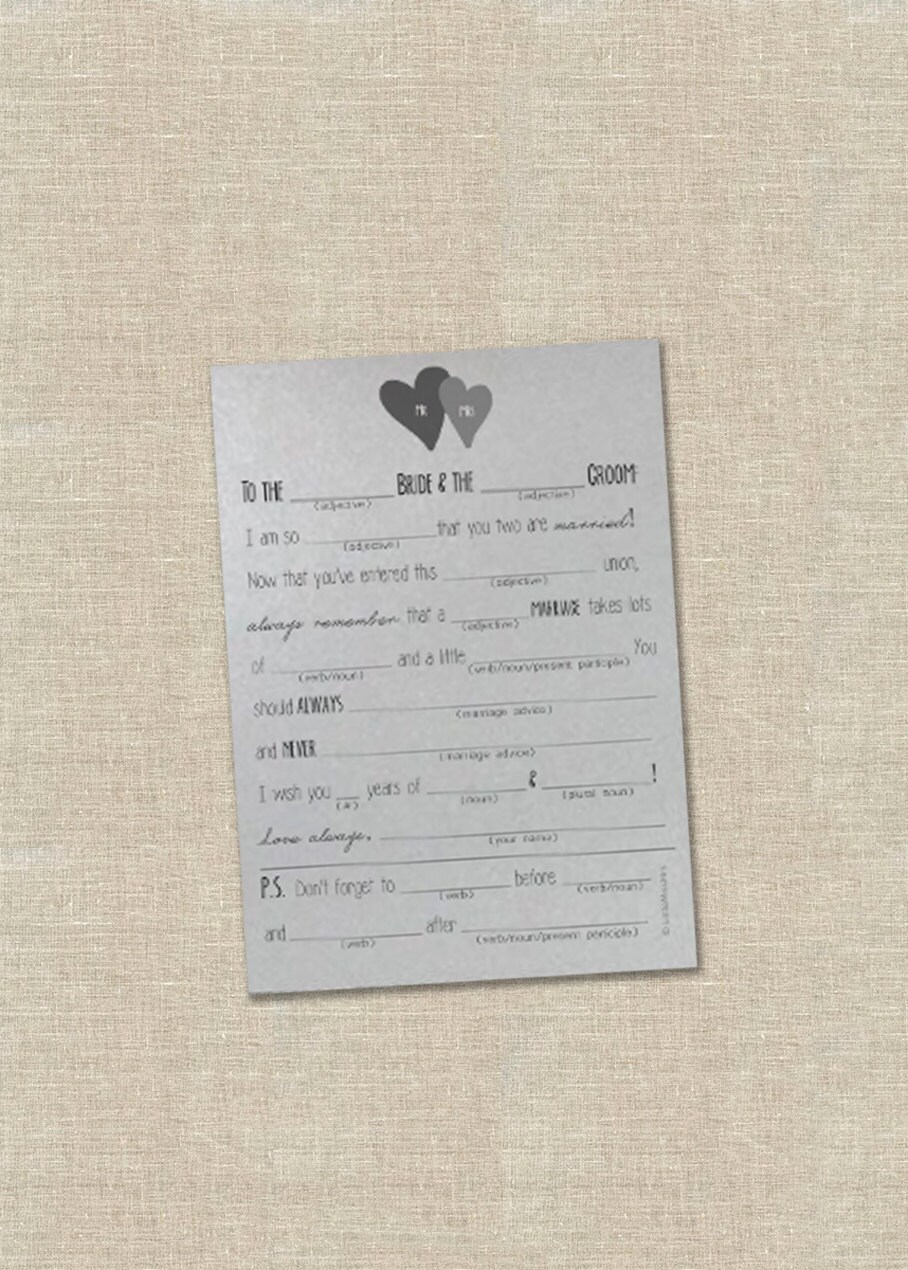 MR MRS
TO THE ____ BRIDE & THE ____ GROOM:
(adjective) (adjective)
I am so ____ that you two are married!
(adjective)
Now that you've entered this ____ union,
(adjective)
always remember that a ____ MARRIAGE takes lots
(adjective)
of ____ and a little ____. You
(verb/noun) (verb/noun/present participle)
should ALWAYS ____
(marriage advice)
and NEVER ____
(marriage advice)
I wish you __ years of ____ & ____!
(#) (noun) (plural noun)
Love always, ____
(your name)
P.S. Don't forget to ____ before ____
(verb) (verb/noun)
and ____ after ____
(verb) (verb/noun/present participle)